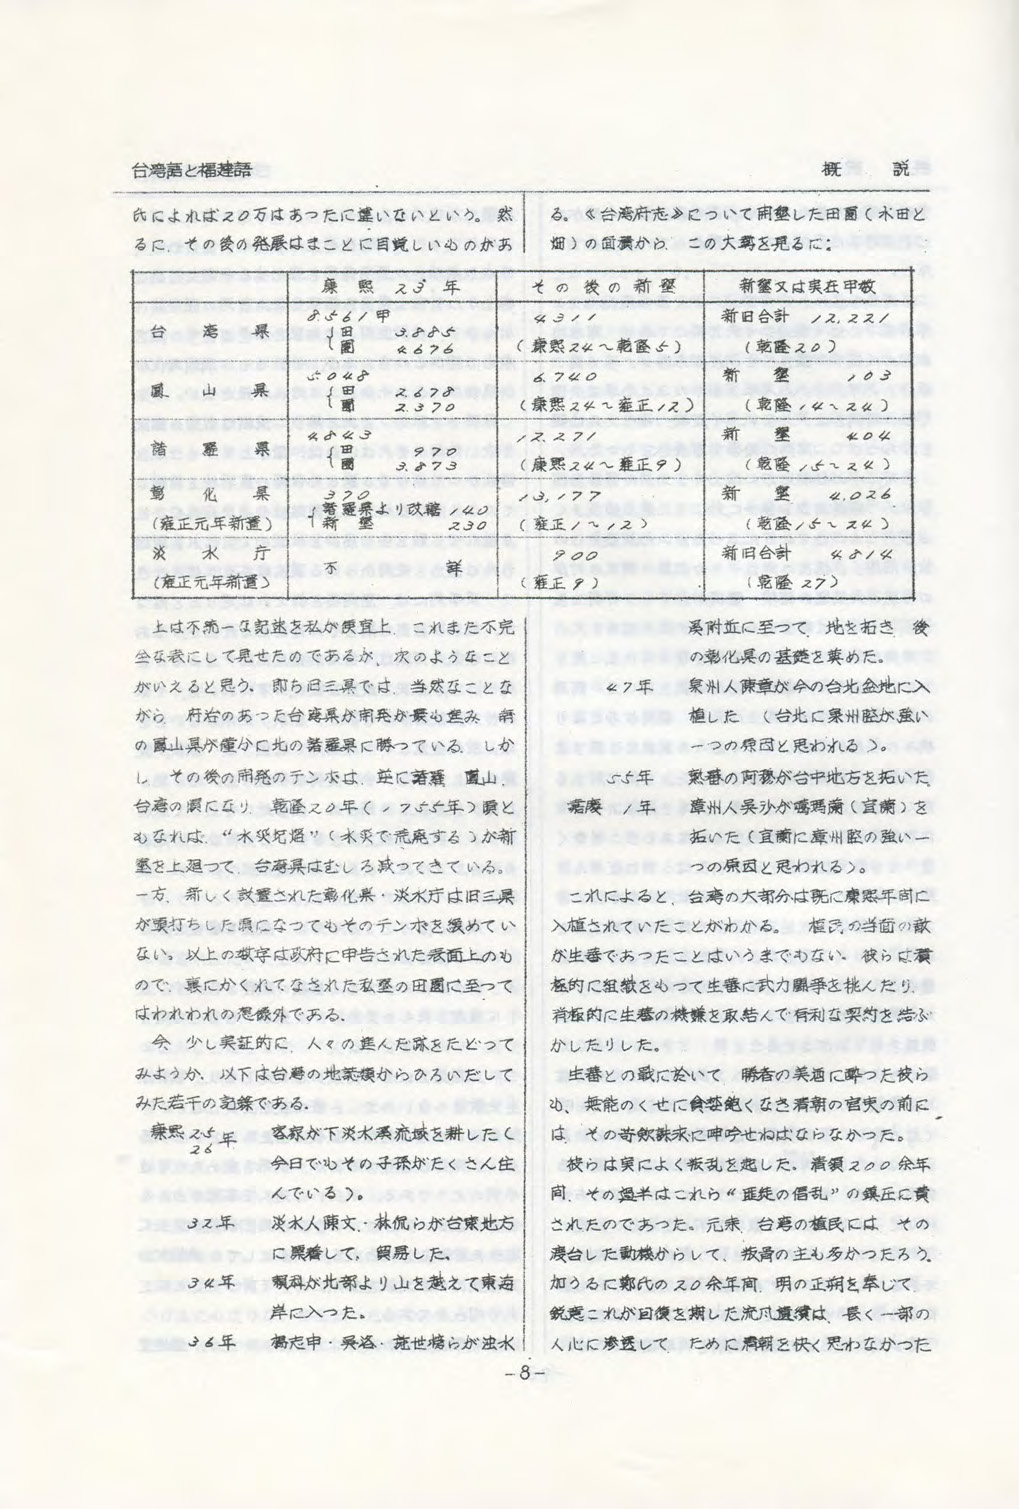 台湾語と福建語
概　説
氏によれば20万はあったに違いないという。然
るに、その後の発展はまことに目覚しいものがあ
る。≪台湾府志≫について開墾した田園(水田と
畑)の面積から、この大勢を見るに:
康熙23年　その後の新墾　新墾又は実在甲数
台湾県　8.561甲　4311　新旧合計　12,221
(田　3.885
(園　4.676　(康熙24〜乾隆5)　(乾隆20)
鳳山県　5.048　6.740　新墾　103
(田　2.678
(園　2.370　(康熙24〜雍正12)　(乾隆14〜24)
諸羅県　4.843　12.271　新墾　404
(田　970
(園　3.873　(康熙24〜雍正9)　(乾隆15〜24)
彰化県　370　13,177　新墾　4,026
(雍正元年新置)　(諸羅県より改隷140
(新墾　230　(雍正1〜12)　(乾隆15〜24)
淡水庁　不詳　900　新旧合計　4814
(雍正元年新置)　(雍正9)　(乾隆27)
上は不統一な記述を私が便宜上、これまた不完
全な表にして見せたのであるが、次のようなこと
がいえると思う。即ち旧三県では、当然なことな
がら、府治のあった台湾県が開発が最も進み、南
の鳳山県が僅かに北の諸羅県に勝っている。しか
し、その後の開発のテンポは、逆に諸羅、鳳山、
台湾の順になり、乾隆20年(1755年)頃と
もなれば、“水災圮塌”(水災で荒廃する)が新
墾を上廻って、台湾県はむしろ減ってきている。
一方、新しく設置された彰化県・淡水庁は旧三県
が頭打ちした頃になってもそのテンポを緩めてい
ない。以上の数字は政府に申告された表面上のも
ので、裏にかくれてなされた私墾の田園に至って
はわれわれの想像外である。
今、少し実証的に、人々の進んだ跡をたどって
みようか。以下は台湾の地誌類からひろいだして
みた若干の記録である。
康熙25
26年　客家が下淡水渓流域を耕した(
今日でもその子孫がたくさん住
んでいる)。
32年　淡水人陳文・林侃らが台東地方
に熟番して、貿易した。
34年　頼科が北部より山を越えて東海
岸に入った。
36年　楊志申・呉洛・施世榜らが浊水
渓附近に至って、地を拓き、後
の彰化県の基礎を築めた。
47年　泉州人陳章が今の台北盆地に入
植した　(台北に泉州腔が強い
一つの原因と思われる)。
55年　熟番の阿穆が台中地方を拓いた
嘉慶　1年　漳州人呉沙が噶瑪蘭(宜蘭)を
拓いた(宜蘭に漳州腔の強い一
つの原因と思われる)。
これによると、台湾の大部分は既に康熙年間に
入植されていたことがわかる。　植民の当面の敵
が生番であったことはいうまでもない。彼らは積
極的に組織をもって生番に武力闘争を挑んだり、
消極的に生番の機嫌を取結んで有利な契約を結ぶ
かしたりした。
生番との戦に於いて、勝者の美酒に酔った彼ら
も、無能のくせに貪婪飽くなき清朝の官吏の前に
は、その苛歛誅求に呻吟せねばならなかった。
彼らは実によく叛乱を起した。清領200余年
間、その過半はこれら“匪徒の倡乱”の鎮圧に費
されたのであった。元来、台湾の植民には、その
渡台した動機からして、叛骨の主も多かったろう。
加うるに鄭氏の20余年間、明の正朔を奉じて、
鋭意これが回復を期した流风遺績は、長く一部の
人心に滲透して、ために清朝を快く思わなかった
-8-